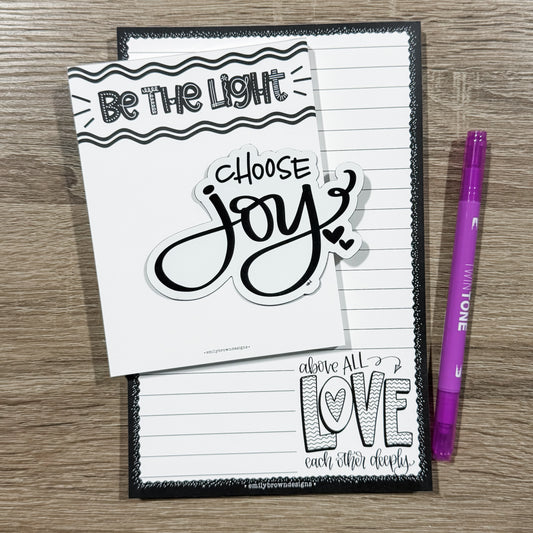 Be THE LIGHT
CHOOSE
joy
•emilybrowndesigns•
above ALL
LOVE
each other deeply
•emilybrowndesigns•
TWINTONE